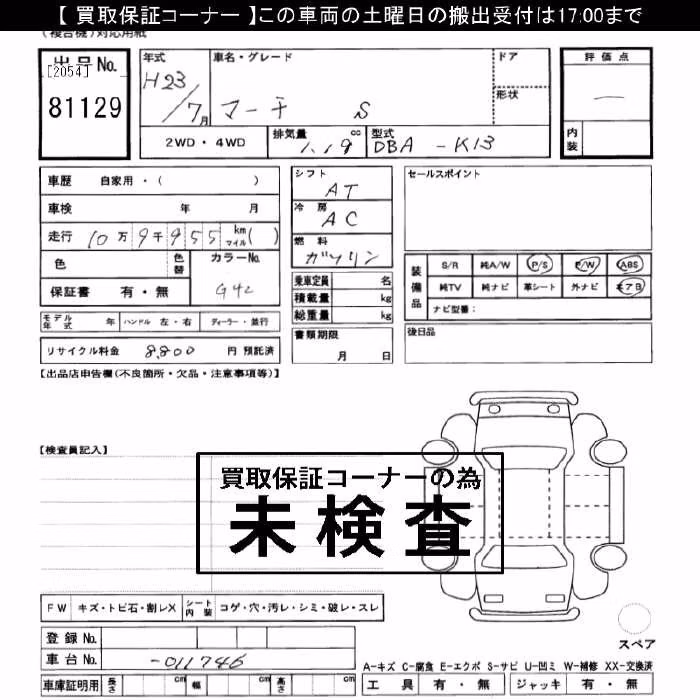 【 買取保証コーナー 】この車両の土曜日の搬出受付は17:00まで
(複合機)対応用紙
出品No.
[2054]
81129
年式
H23/7月
車名・グレード
マーチ S
ドア
形状
評価点
—
内装
2WD・4WD
排気量 cc
1.19
型式
DBA - K13
車歴 自家用・( )
車検 年 月
走行 10万9千955 km マイル( )
色
色替
カラーNo.
G42
保証書 有・無
シフト
AT
冷房
AC
燃料
ガソリン
乗車定員 名
積載量 kg
総重量 kg
セールスポイント
装備品
S/R 純A/W P/S P/W ABS
純TV 純ナビ 革シート 外ナビ エアB
ナビ型番:
モデル年式 年 ハンドル 左・右 ディーラー・並行
リサイクル料金 8,800 円 預託済
書類期限
月 日
後日品
【出品店申告欄(不良箇所・欠品・注意事項等)】
【検査員記入】
買取保証コーナーの為
未検査
FW キズ・トビ石・割レX シート内装 コゲ・穴・汚レ・シミ・破レ・スレ
登録No.
車台No. -011746
車庫証明用 長さ cm 幅 cm 高さ cm
スペア
A-キズ C-腐食 E-エクボ S-サビ U-凹ミ W-補修 XX-交換済
工具 有・無 ジャッキ 有・無